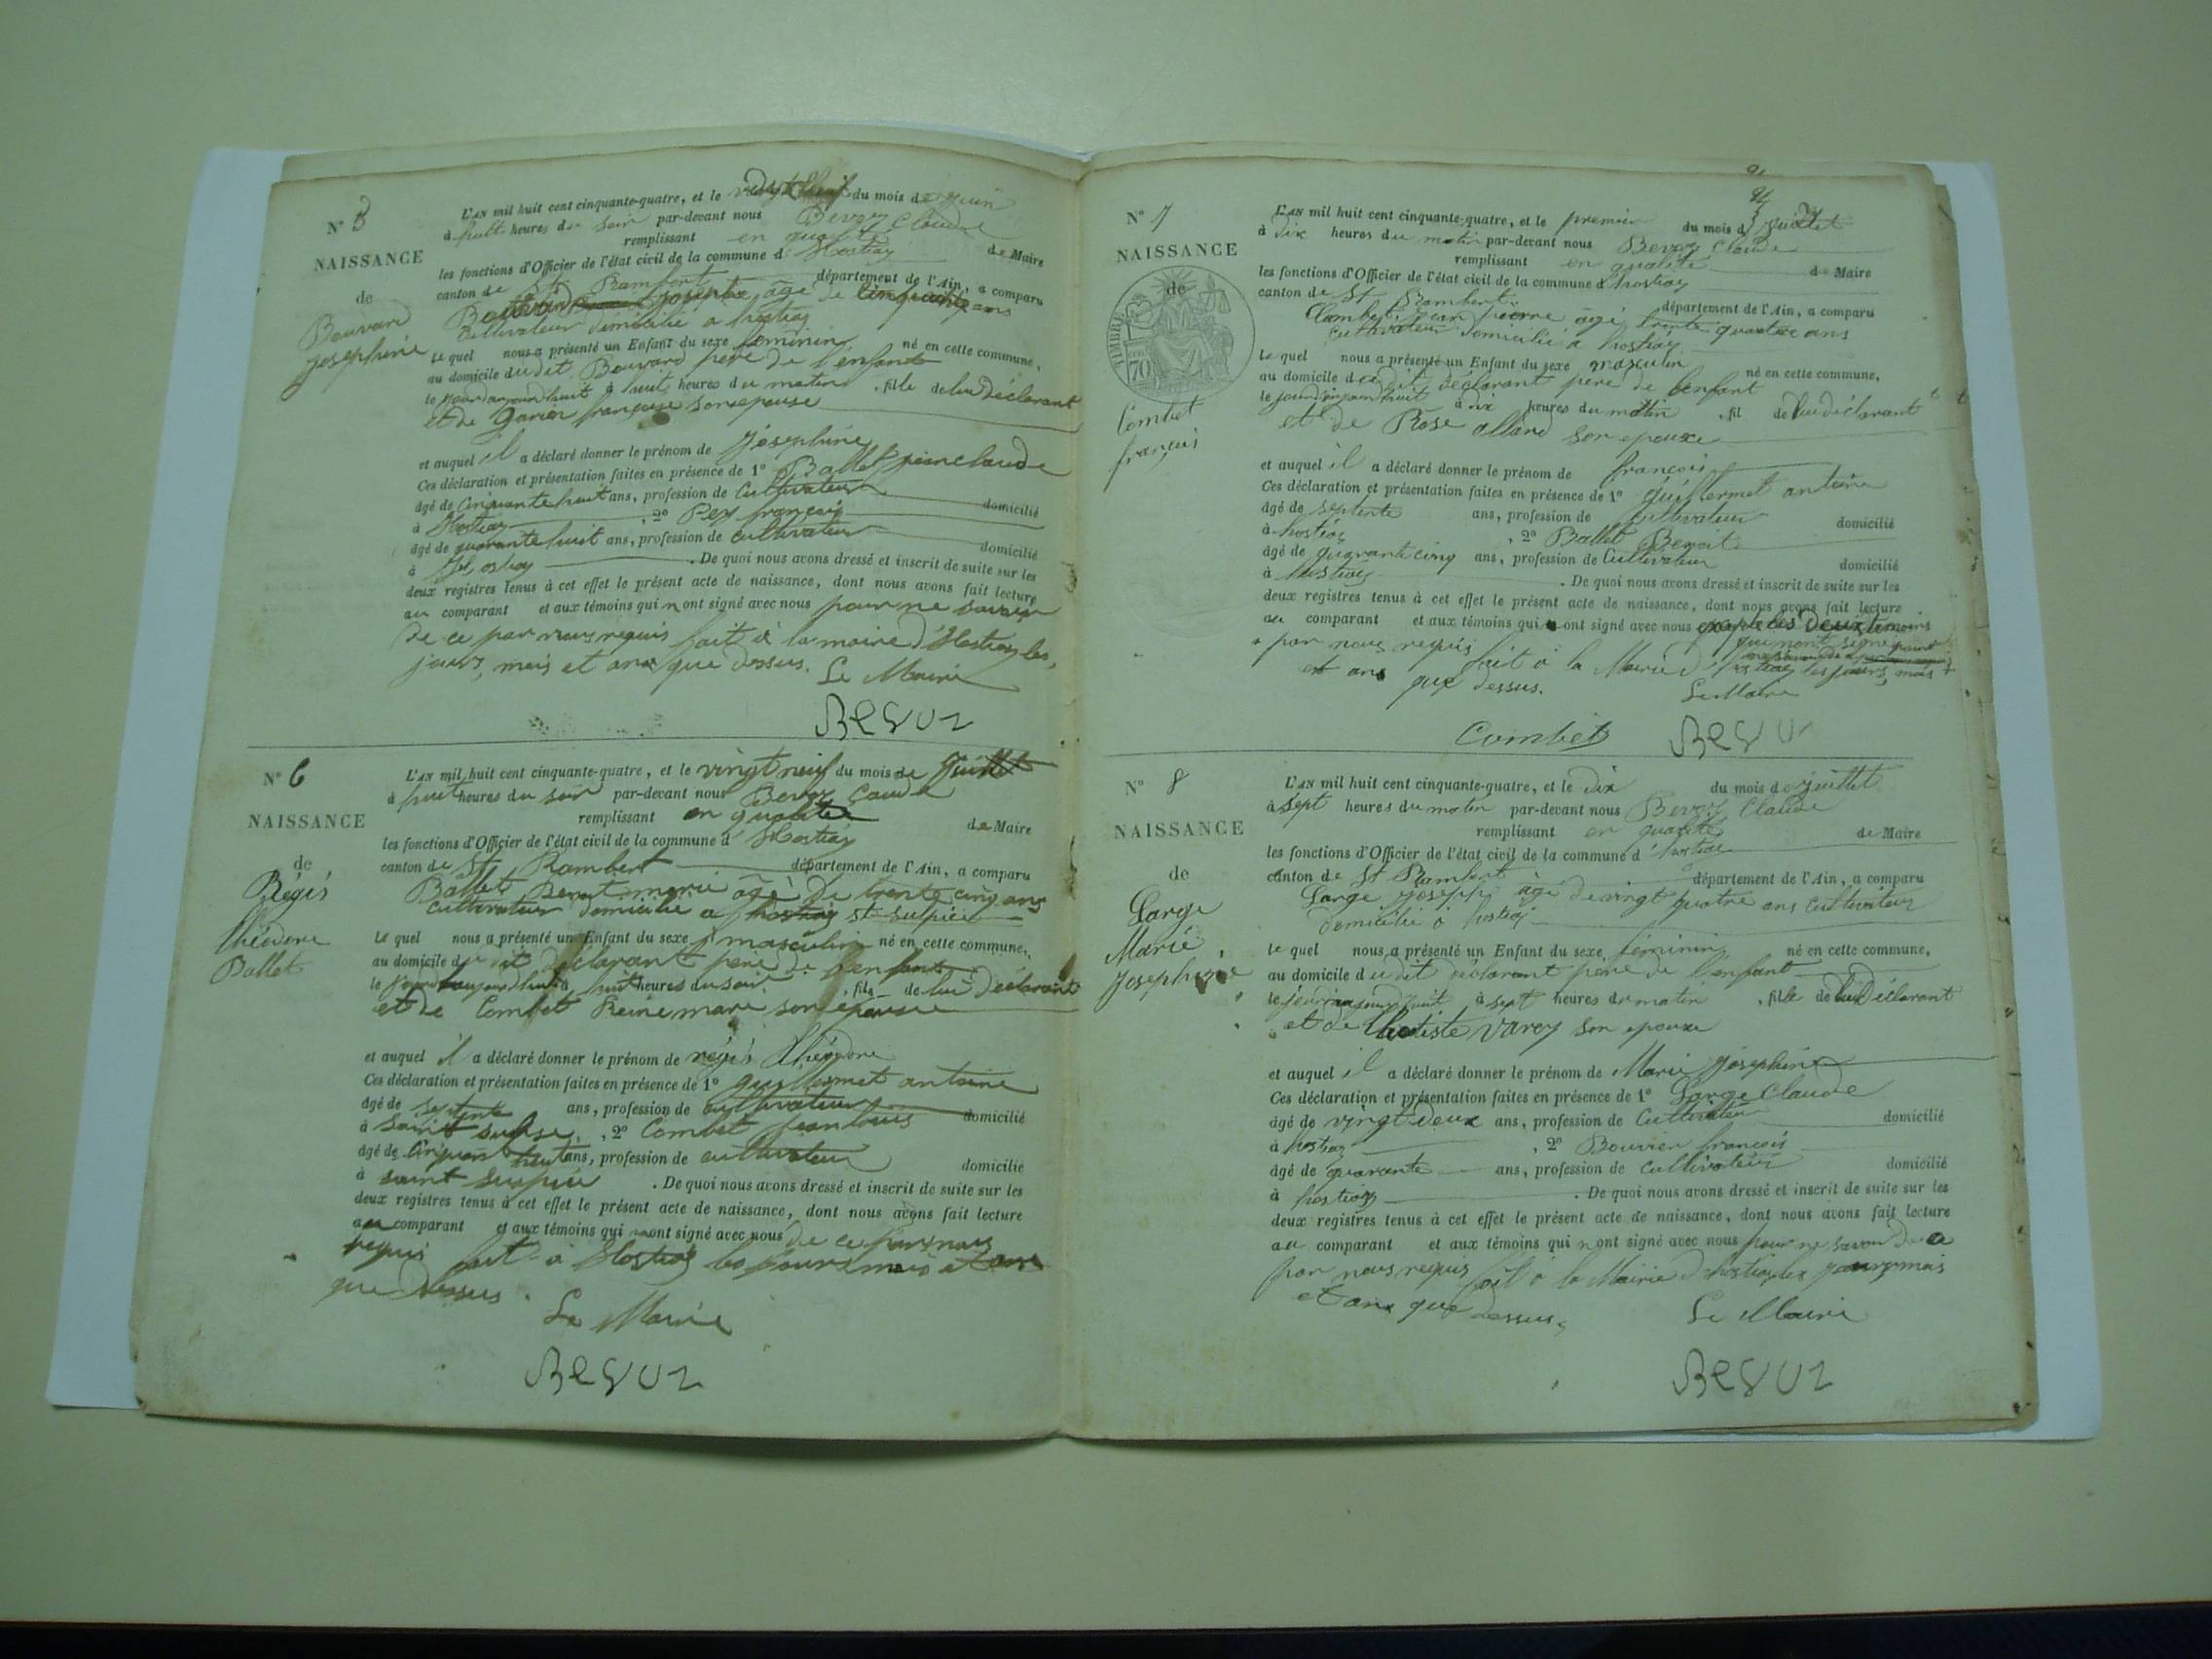 N° 5
NAISSANCE
de
Bouvard
josephine
L'AN mil huit cent cinquante-quatre, et le du mois de juin
à huit heures du soir par-devant nous Bevoz Claude
remplissant en qualité de Maire
les fonctions d'Officier de l'état civil de la commune d' Hostiaz
canton de St Rambert département de l'Ain, a comparu
Bouvard joseph âgé de cinquante ans
cultivateur domicilié a hostiaz
Le quel nous a présenté un Enfant du sexe feminin né en cette commune,
au domicile dudit Bouvard père de l'enfant
le jourdaujourdhuit à huit heures du matin , fille de lui déclarant
et de françoise son epouse
et auquel il a déclaré donner le prénom de Josephine
Ces déclaration et présentation faites en présence de 1° Ballet jean claude
âgé de cinquante huit ans, profession de cultivateur domicilié
à Hostiaz , 2° Pey françois
âgé de quarante huit ans, profession de cultivateur domicilié
à Hostiaz . De quoi nous avons dressé et inscrit de suite sur les
deux registres tenus à cet effet le présent acte de naissance, dont nous avons fait lecture
au comparant et aux témoins qui n ont signé avec nous pour ne savoir
de ce par nous requis fait à la mairie d'Hostiaz les
jours, mois et ans que dessus. Le Maire
BEVOZ
N° 6
NAISSANCE
de
Régis
théodore
Ballet
L'AN mil huit cent cinquante-quatre, et le vingt neuf du mois de
à huit heures du soir par-devant nous Bevoz Claude
remplissant en qualité de Maire
les fonctions d'Officier de l'état civil de la commune d' Hostiaz
canton de St Rambert département de l'Ain, a comparu
Ballet Benoit marie âgé de trente cinq ans
cultivateur domicilié a hostiaz st sulpice
Le quel nous a présenté un Enfant du sexe masculin né en cette commune,
au domicile du dit déclarant père de l'enfant
le jourdaujourdhui à huit heures du soir , fils de lui déclarant
et de Combet Reine marie son épouse
et auquel il a déclaré donner le prénom de régis théodore
Ces déclaration et présentation faites en présence de 1° guillermet antoine
âgé de septente ans, profession de cultivateur domicilié
à saint , 2° Combet jean louis
âgé de ans, profession de cultivateur domicilié
à saint . De quoi nous avons dressé et inscrit de suite sur les
deux registres tenus à cet effet le présent acte de naissance, dont nous avons fait lecture
au comparant et aux témoins qui n ont signé avec nous de ce par nous
requis fait à Hostiaz les jours mois et ans
que dessus. Le Maire
BEVOZ
N° 7
NAISSANCE
de
TIMBRE
70
Combet
français
L'AN mil huit cent cinquante-quatre, et le premier du mois de juillet
à dix heures du matin par-devant nous Bevoz Claude
remplissant en qualité de Maire
les fonctions d'Officier de l'état civil de la commune d'hostiaz
canton de St Rambert département de l'Ain, a comparu
Combet jean pierre âgé trente quatre ans
cultivateur domicilié à hostiaz
Le quel nous a présenté un Enfant du sexe masculin né en cette commune,
au domicile du dit déclarant père de l'enfant
le jourd'aujourdhuit à dix heures du matin , fil de lui déclarant
et de Rose allard son epouse
et auquel il a déclaré donner le prénom de françois
Ces déclaration et présentation faites en présence de 1° guillermet antoine
âgé de septente ans, profession de cultivateur domicilié
à hostiaz , 2° Ballet Benoit
âgé de quarante cinq ans, profession de Cultivateur domicilié
à hostiaz . De quoi nous avons dressé et inscrit de suite sur les
deux registres tenus à cet effet le présent acte de naissance, dont nous avons fait lecture
au comparant et aux témoins qui ont signé avec nous excepté les deux temoins
qui n'ont signé pour
par nous requis fait à la Mairie d'hostiaz les jours, mois
et ans que dessus. Le Maire
Combet BEVOZ
N° 8
NAISSANCE
de
Large
Marie
Josephine
L'AN mil huit cent cinquante-quatre, et le dix du mois de juillet
à sept heures du matin par-devant nous Bevoz Claude
remplissant en qualité de Maire
les fonctions d'Officier de l'état civil de la commune d'hostiaz
canton de St Rambert département de l'Ain, a comparu
Large Joseph âgé de vingt quatre ans cultivateur
domicilié à hostiaz
Le quel nous a présenté un Enfant du sexe féminin né en cette commune,
au domicile du dit déclarant père de l'enfant
le jourd'aujourdhuit à sept heures du matin , fille de lui déclarant
et de Batiste Varey son epouse
et auquel il a déclaré donner le prénom de Marie josephine
Ces déclaration et présentation faites en présence de 1° Large Claude
âgé de vingt deux ans, profession de Cultivateur domicilié
à hostiaz , 2° Bouvier françois
âgé de quarante ans, profession de cultivateur domicilié
à hostiaz . De quoi nous avons dressé et inscrit de suite sur les
deux registres tenus à cet effet le présent acte de naissance, dont nous avons fait lecture
au comparant et aux témoins qui n ont signé avec nous pour ne savoir de ce
par nous requis fait à la Mairie d'hostiaz les jours mois
et ans que dessus. Le Maire
BEVOZ